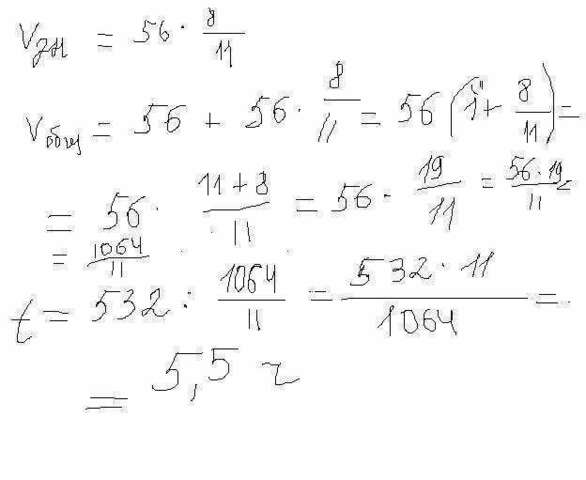 Vдм = 56 · 8/11
Vобщ = 56 + 56 · 8/11 = 56 (1 + 8/11) =
= 56 · 11 + 8/11 = 56 · 19/11 = 56 · 19/11 =
= 1064/11
t = 532 : 1064/11 = 532 · 11/1064 =
= 5,5 ч